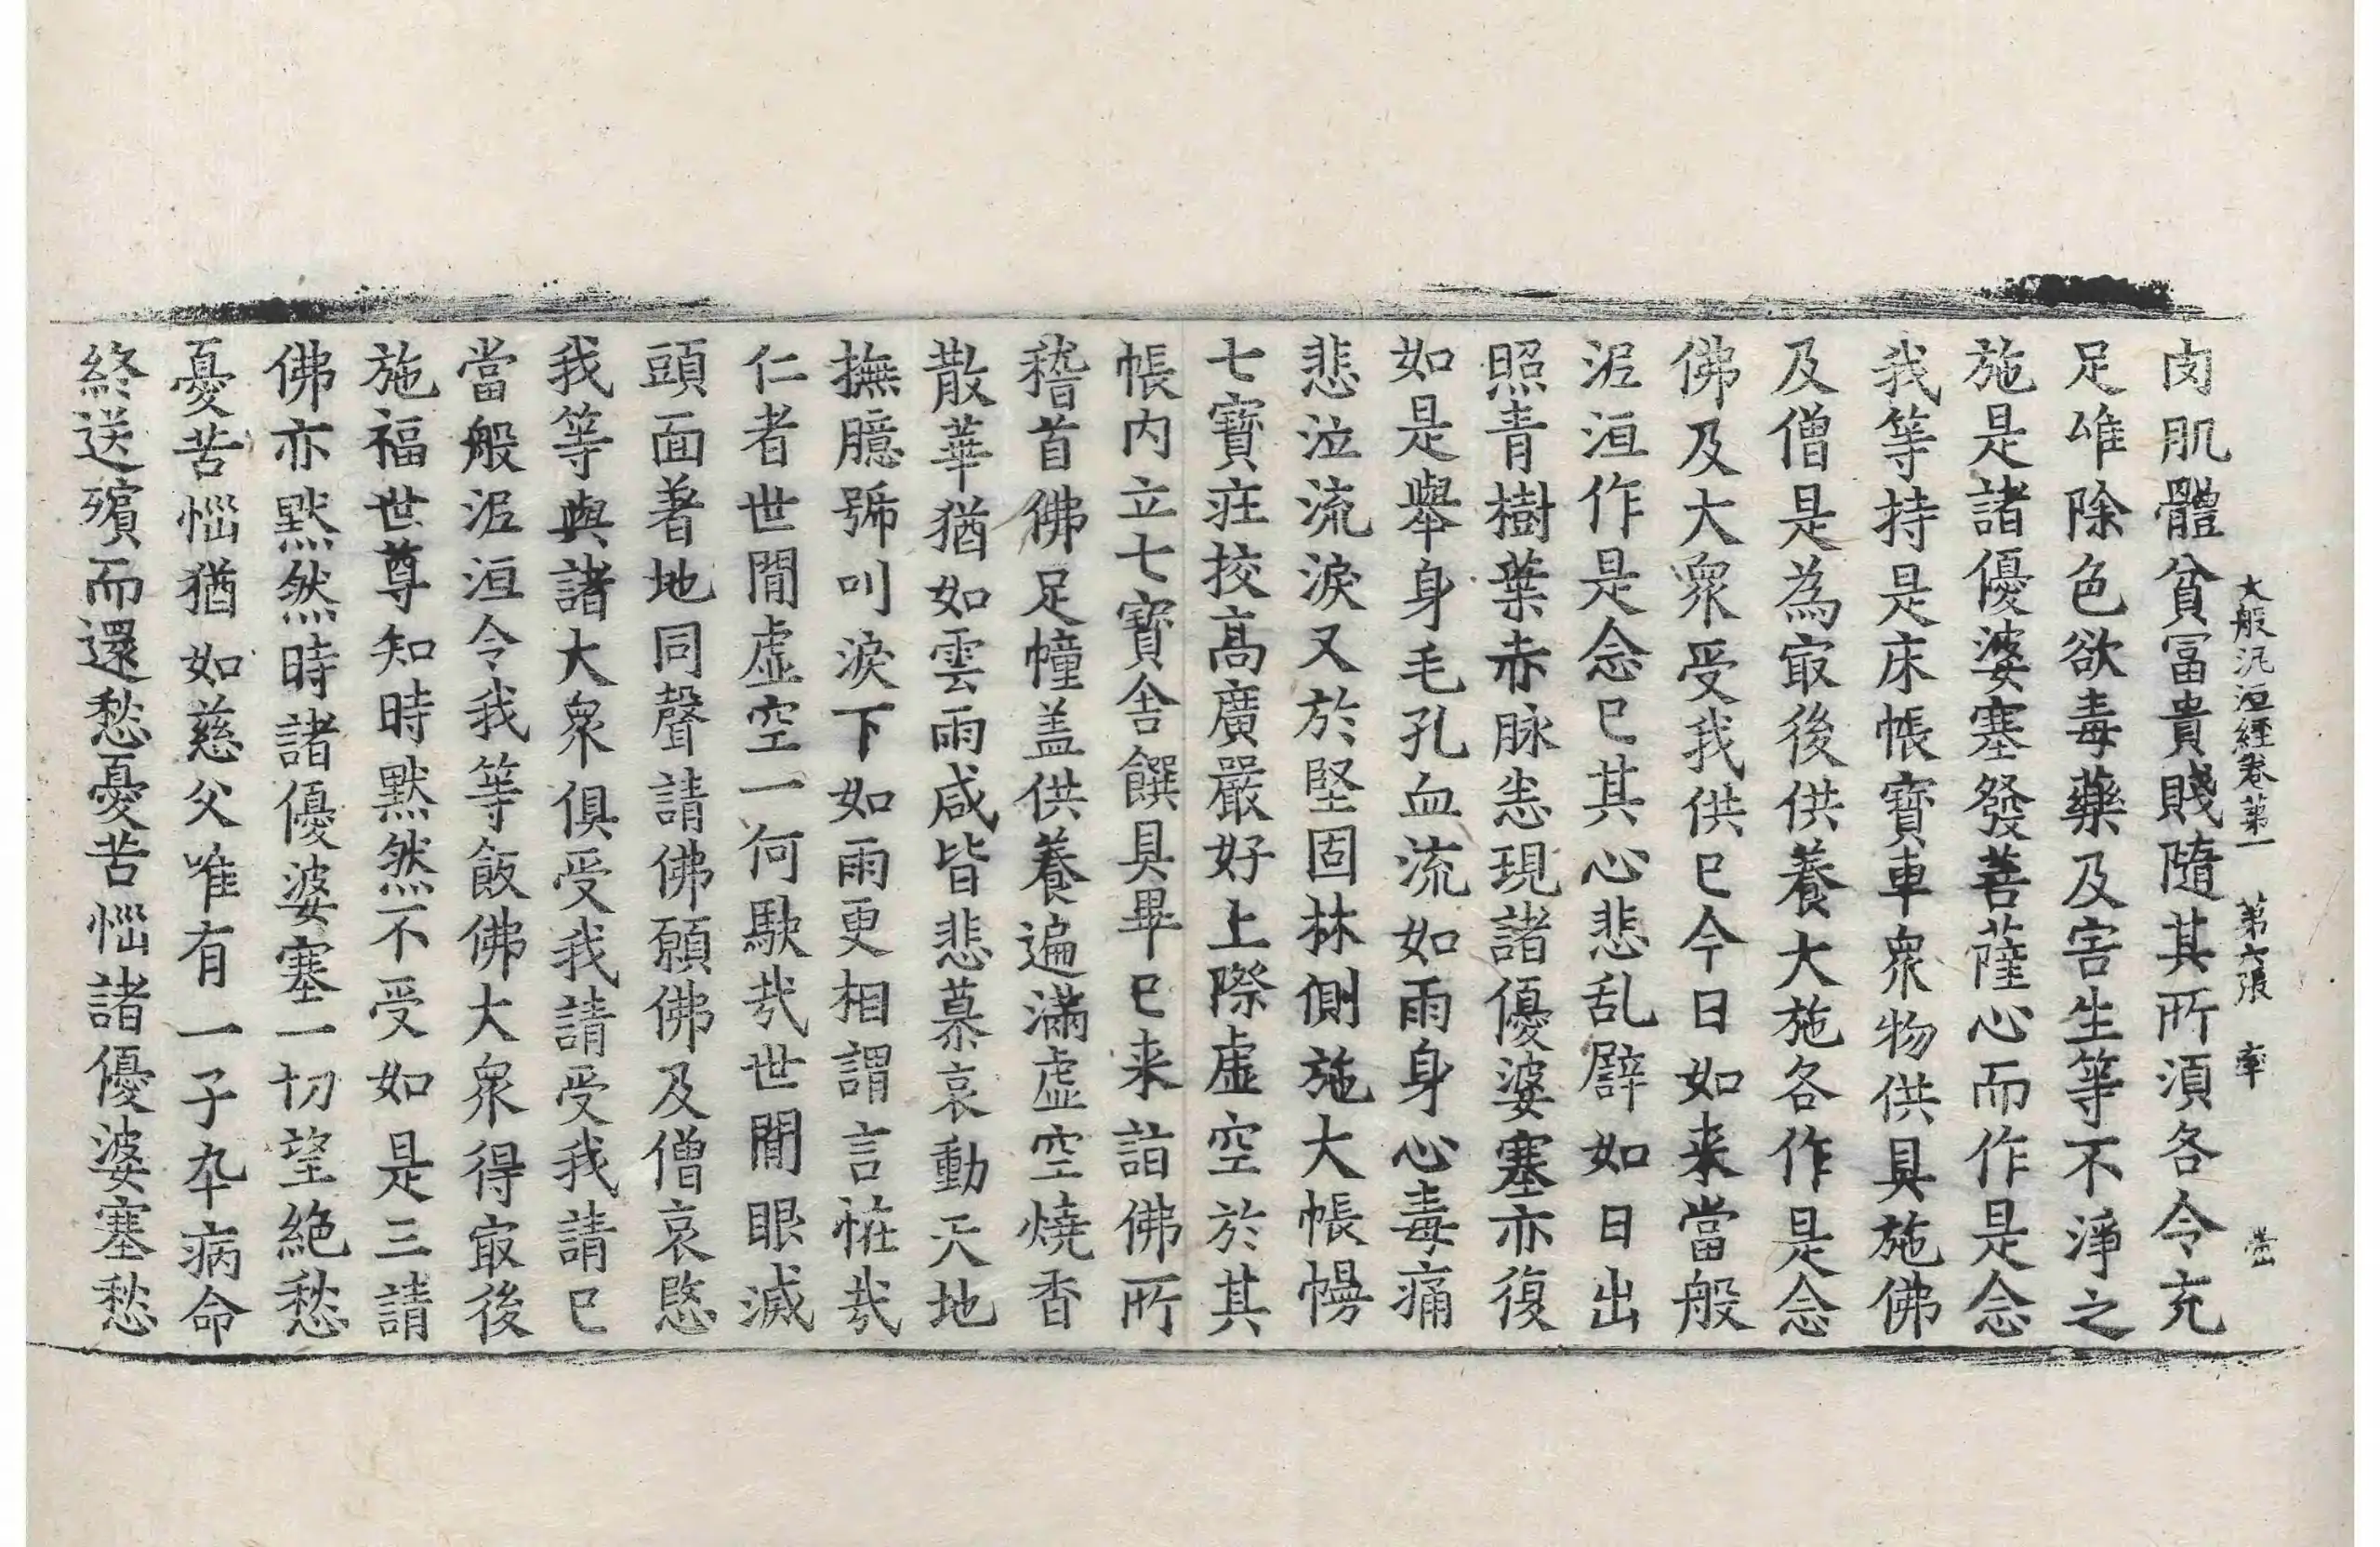 大般泥洹經卷第一　第六張　率
肉肌體貧冨貴賤隨其所湏各令充
足唯除色欲毒藥及害生等不淨之
施是諸優婆塞發菩薩心而作是念
我等持是床帳寶車衆物供具施佛
及僧是為㝡後供養大施各作是念
佛及大衆受我供已今日如来當般
泥洹作是念已其心悲乱譬如日出
照青樹葉赤脉悉現諸優婆塞亦復
如是舉身毛孔血流如雨身心毒痛
悲泣流淚又於堅固林側施大帳幔
七寶莊挍高廣嚴好上際虛空於其
帳内立七寶舍饌具畢已来詣佛所
稽首佛足幢盖供養遍滿虛空燒香
散華猶如雲雨咸皆悲慕哀動天地
撫臆號叫淚下如雨更相謂言恠哉
仁者世間虛空一何駃哉世間眼滅
頭面著地同聲請佛願佛及僧哀愍
我等與諸大衆俱受我請受我請已
當般泥洹令我等飯佛大衆得㝡後
施福世尊知時默然不受如是三請
佛亦默然時諸優婆塞一切望絶愁
憂苦惱猶如慈父唯有一子卒病命
終送殯而還愁憂苦惱諸優婆塞愁